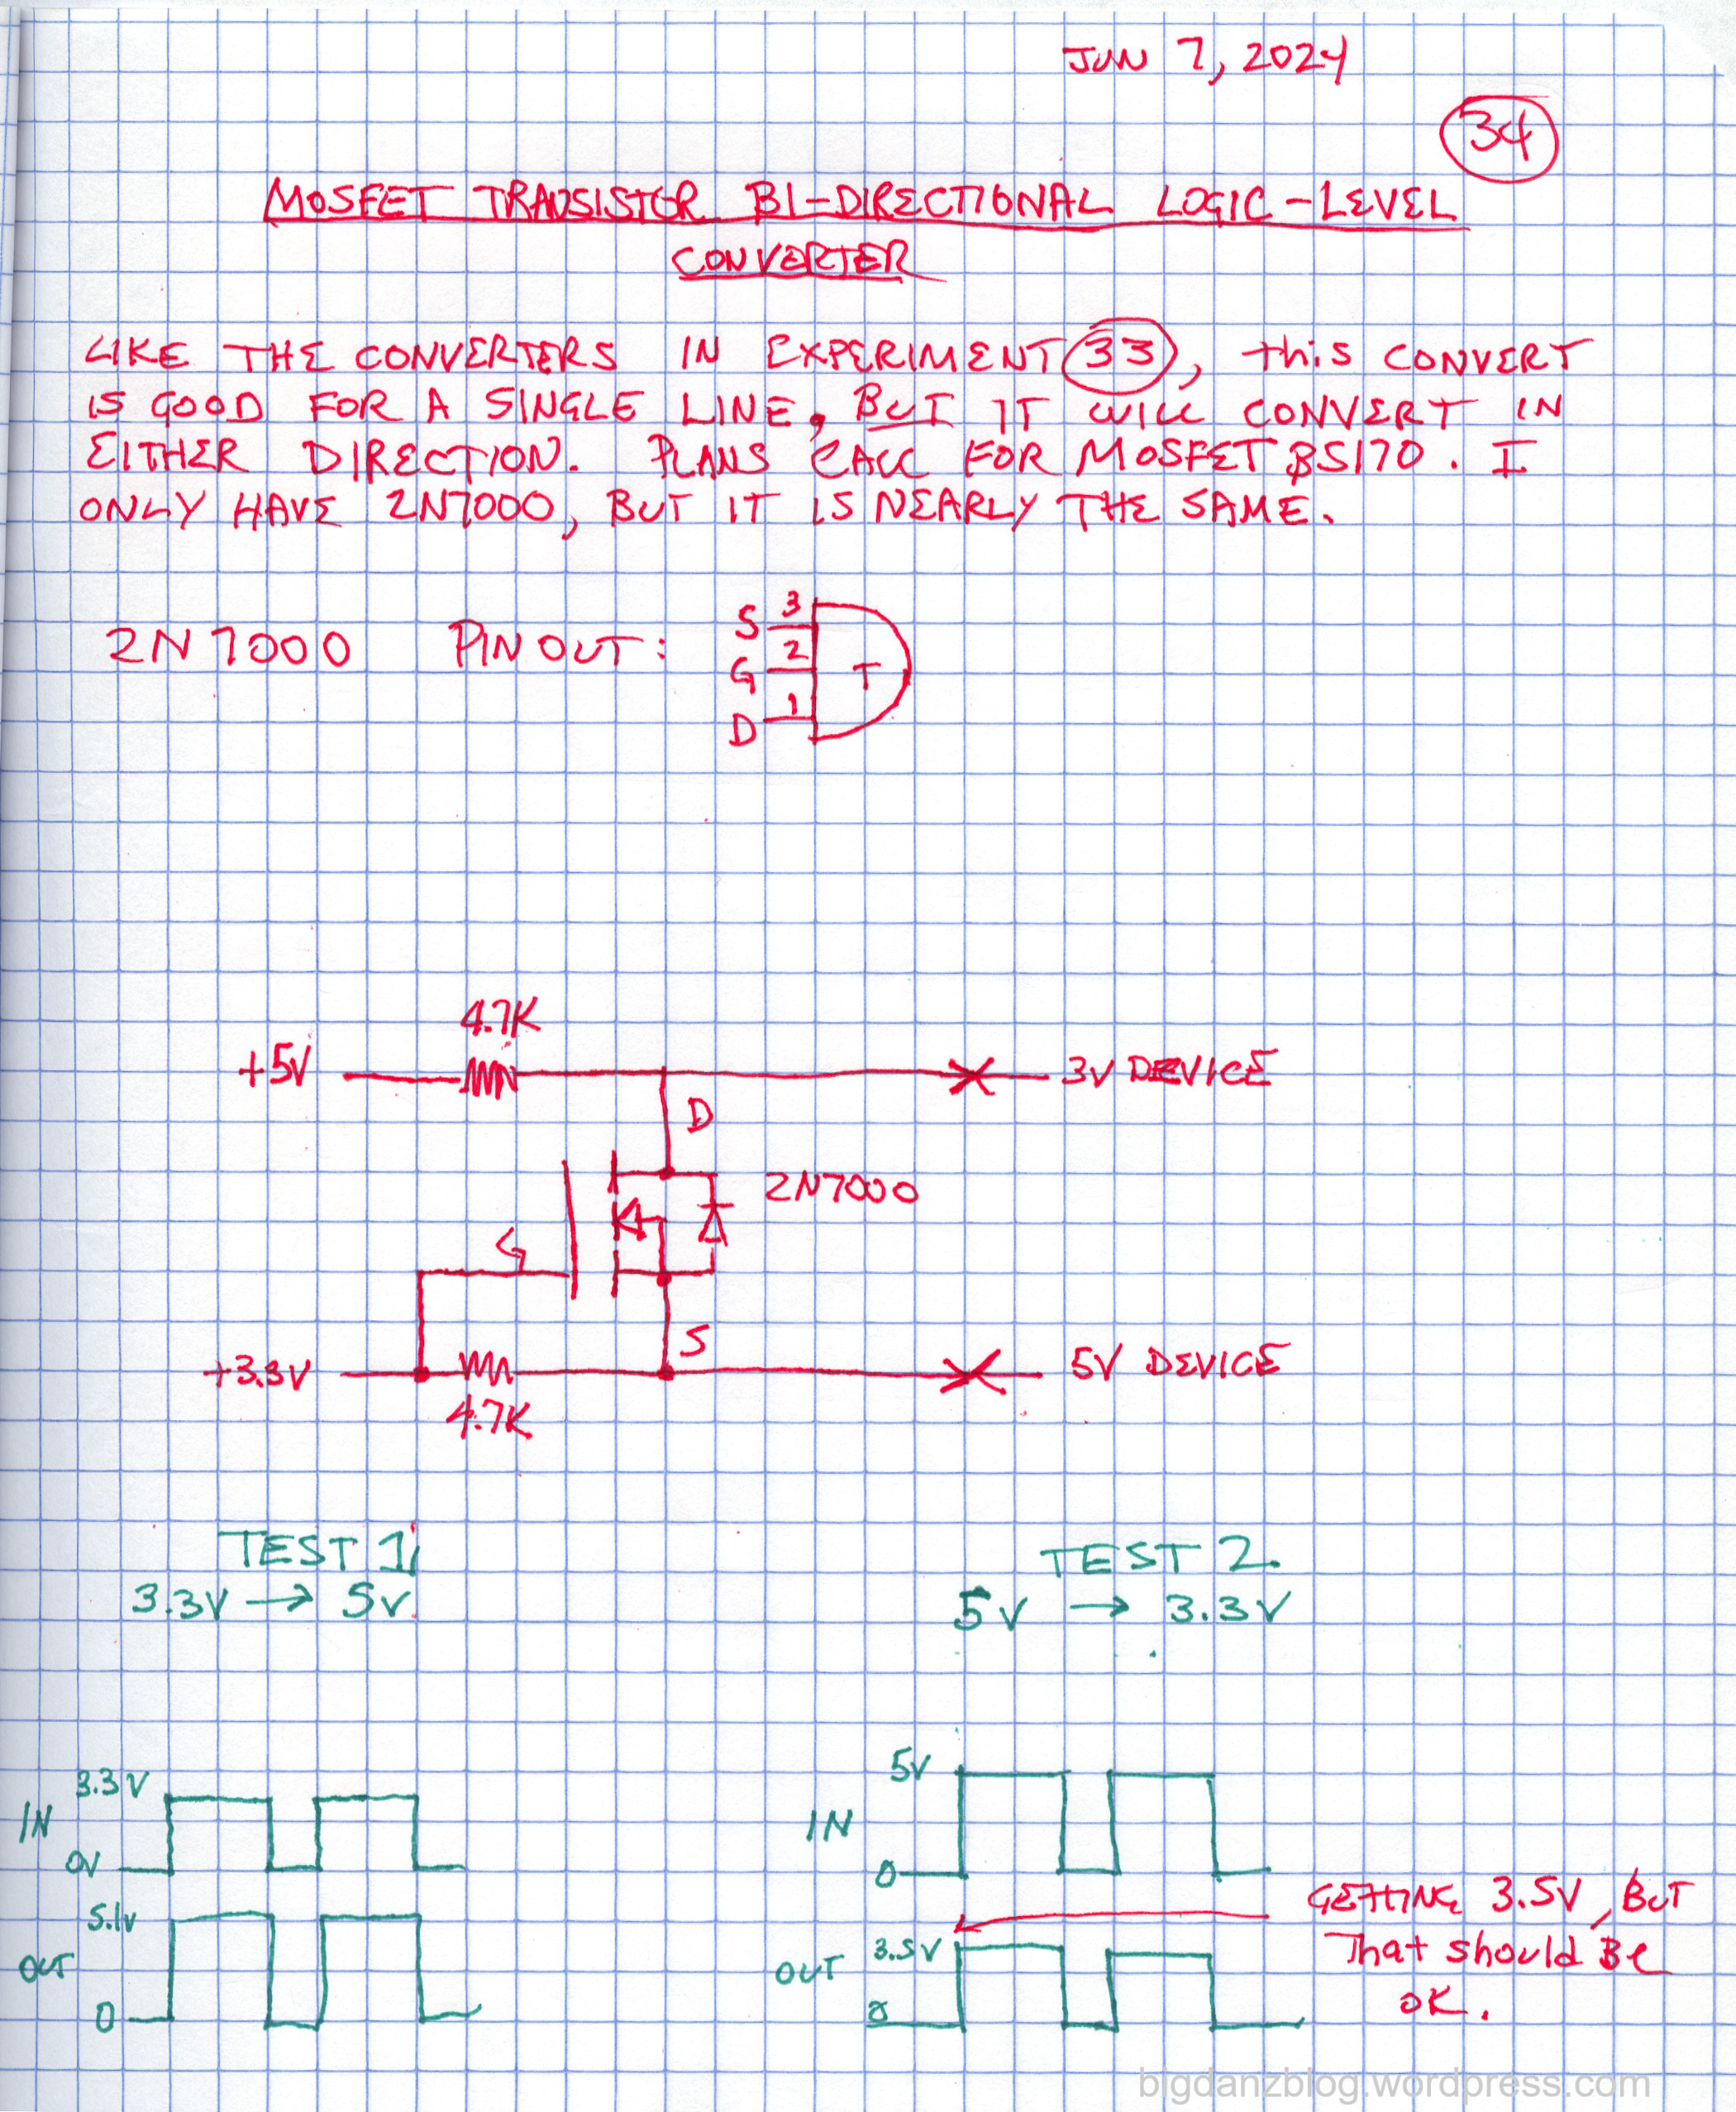 JUN 7, 2024
34
MOSFET TRANSISTOR BI-DIRECTIONAL LOGIC-LEVEL
CONVERTER
LIKE THE CONVERTERS IN EXPERIMENT 33, this CONVERT
IS GOOD FOR A SINGLE LINE, BUT IT WILL CONVERT IN
EITHER DIRECTION. PLANS CALL FOR MOSFET BS170. I
ONLY HAVE 2N7000, BUT IT IS NEARLY THE SAME.
2N7000 PINOUT:
S 3
G 2
D 1
T
4.7K
+5V
3V DEVICE
D
2N7000
G
S
+3.3V
5V DEVICE
4.7K
TEST 1
3.3V → 5V
TEST 2
5V → 3.3V
3.3V
IN
0V
5.1V
OUT
0
5V
IN
0
3.5V
OUT
0
GETTING 3.5V, BUT
That should Be
OK.
bigdanzblog.wordpress.com